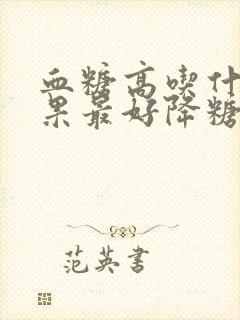 血糖高喫什
果最好降糖
范英書